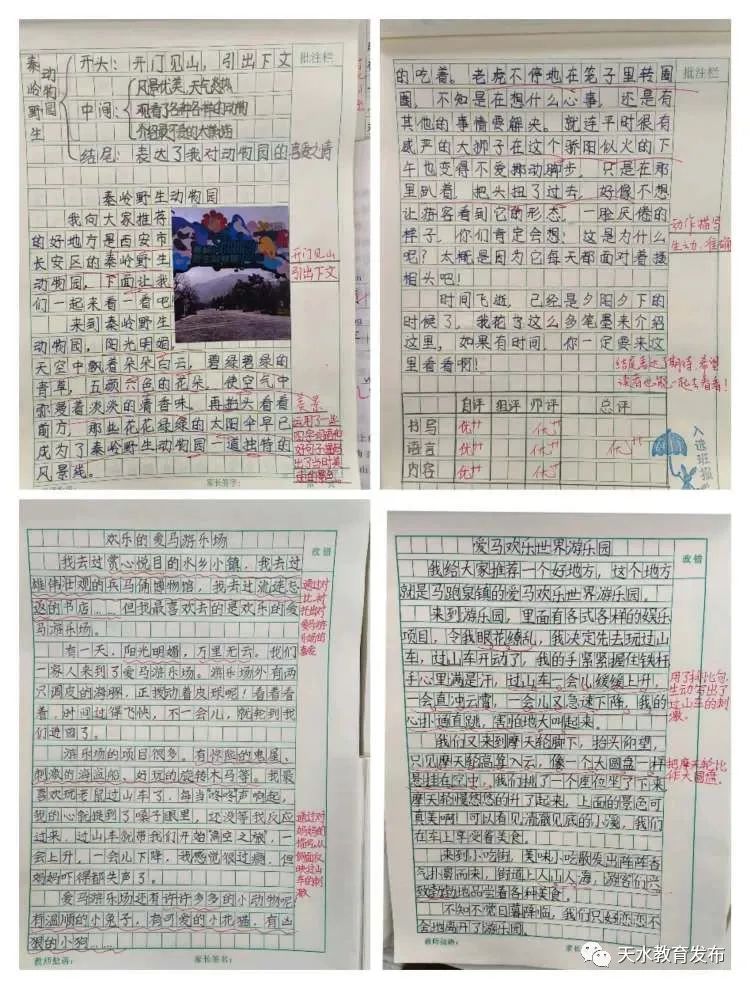 秦岭野生动物园
开头：开门见山，引出下文
风景优美，天气炎热
中间：观看了各种各样的动物
介绍最可爱的大狮话
结尾：表达了我对动物园的喜爱之情
批注栏
秦岭野生动物园
我向大家推荐
的好地方是西安市
长安区的秦岭野生
动物园，下面让我
们一起来看一看吧
来到秦岭野生
动物园，阳光明媚，
天空中飘着朵朵白云，碧绿碧绿的
青草，五颜六色的花朵，使空气中
弥漫着淡淡的清香味。再抬头看看
前方，那些花花绿绿的太阳伞早已
成为了秦岭野生动物园一道独特的
风景线。
开门见山
引出下文
家长签字：
的吃着。老虎不停地在笼子里转圈
圈，不知是在想什么心事，还是有
其他的事情要解决。就连平时很有
威严的大狮子在这个骄阳似火的下
午也变得不爱挪动脚步，只是在那
里趴着，把头扭了过去，好像不想
让游客看到它的形态，一脸厌倦的
样子，你们肯定会想：这是为什么
呢？大概是因为它每天都面对着摄
相头吧！
时间飞逝，已经是夕阳夕下的
时候了，我花了这么多笔墨来介绍
这里，如果有时间，你一定要来这
里看看啊！
批注栏
动作描写
生动、准确
结尾表达了期待，希望
读者也能一起去看看！
自评 组评 师评 总评
书写 优 优
语言 优 优 优
内容 优 优
入选班报
欢乐的爱马游乐场
改错
我去过赏心悦目的水乡小镇，我去过
雄伟壮观的兵马俑博物馆，我去过流连忘
返的书店……但我最喜欢去的是欢乐的爱
马游乐场。
有一天，阳光明媚，万里无云。我们
一家人来到了爱马游乐场。游乐场外有两
只调皮的海豚，正我动着皮球呢！看着看
着，时间过得飞快，不一会儿，就轮到我
们进园了。
游乐场的项目很多。有惊险的鬼屋、
刺激的海盗船、好玩的旋转木马等。我最
喜欢玩老鼠过山车了，每当“咚咚”声响起，
我的心就提到了嗓子眼里，还没等我反应
过来，过山车就带我们开始“高空之旅”，一
会上升，一会儿下降，我感觉很过瘾，但
妈妈吓得都失声了。
爱马游乐场还有许许多多的小动物呢
有温顺的小兔子，有可爱的小花猫，有凶
狠的小狗……
教师批语：
家长签名：
爱马欢乐世界游乐园
改错
我给大家推荐一个好地方，这个地方
就是马跑泉镇的爱马欢乐世界游乐园。
来到游乐园，里面有各式各样的娱乐
项目，令我眼花缭乱，我决定先去玩过山
车，过山车开动了，我的手紧紧握在铁杆
手心里满是汗，过山车一会儿缓缓上升，
一会直冲云霄，一会儿又急速下降，我的
心扑通直跳，害怕地大叫起来。
我们又来到摩天轮脚下，抬头仰望，
只见摩天轮高耸入云，像一个大圆盘一样
悬挂在空中，我们挑了一个座位坐了下来
摩天轮慢悠悠的升了起来，上面的景色可
真美啊！可以看见流澈见底的小溪，我们
在车上享受着美食。
来到小吃街，美味小吃散发出阵阵香
气扑鼻而来，街道上人山人海，游客们兴
致勃勃地品尝着各种美食。
不知不觉日暮降临，我们只好恋恋不
舍地离开了游乐园。
用了排比句，
生动写出了
过山车的刺
激。
把摩天轮比
作大圆盘。
教师批语：
家长签名：
天水教育发布